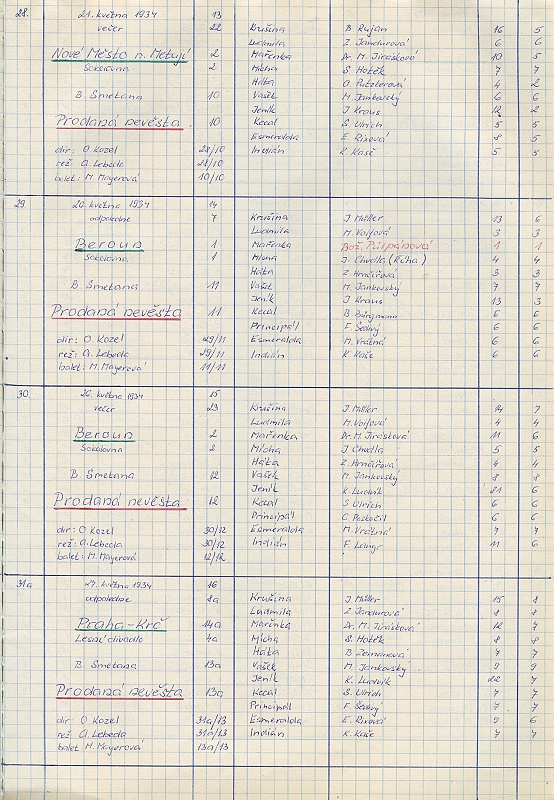 28. 21. května 1934 13
večer 22 Krušina B. Rujan 16 5
Ludmila Z. Jandurová 6 6
Nové Město n. Metují 2 Mařenka Dr. M. Jirásková 10 5
Sokolovna 2 Mícha S. Hotěk 7 7
Háta 4 2
B. Smetana 10 Vašek M. Jankovský 6 6
Jeník J. Kraus 12 2
Prodaná nevěsta 10 Kecal S. Ulrich 5 5
Esmeralda E. Rixová 8 5
dir: O. Kozel 28/10 Indián K. Kaše 5 5
rež: A. Lebeda 28/10
balet: M. Mayerová 10/10
29 26. května 1934 14
odpoledne 7 Krušina J. Müller 13 6
Ludmila M. Vojfová 3 3
Beroun 1 Mařenka Bož. Půlpánová 1 1
Sokolovna 1 Mícha J. Chvdla (Řícha) 4 4
Háta Z. Hrnčířová 3 3
B. Smetana 11 Vašek M. Jankovský 7 7
Jeník J. Kraus 13 3
Prodaná nevěsta 11 Kecal B. Bürgmann 6 6
Principál F. Šedivý 6 6
dir: O. Kozel 29/11 Esmeralda M. Vrátná 6 6
rež: A. Lebeda 29/11 Indián K. Kaše 6 6
balet: M. Mayerová 11/11
30. 26. května 1934 15
večer 23 Krušina J. Müller 14 7
Ludmila M. Vojfová 4 4
Beroun 2 Mařenka Dr. M. Jirásková 11 6
Sokolovna 2 Mícha J. Chvdla 5 5
Háta Z. Hrnčířová 4 4
B. Smetana 12 Vašek M. Jankovský 8 8
Jeník K. Ludvík 21 6
Prodaná nevěsta 12 Kecal S. Ulrich 6 6
Principál 6 6
dir: O. Kozel 30/12 Esmeralda M. Vrátná 7 7
rež: A. Lebeda 30/12 Indián F. Langr 11 6
balet: M. Mayerová 12/12
31a 27. května 1934 16
odpoledne 8a Krušina J. Müller 15 8
Ludmila Z. Jandurová 8 8
Praha-Krč 14a Mařenka Dr. M. Jirásková 12 7
Lesní divadlo 4a Mícha S. Hotěk 8 8
Háta B. Zemanová 7 7
B. Smetana 13a Vašek M. Jankovský 9 9
Jeník K. Ludvík 22 7
Prodaná nevěsta 13a Kecal S. Ulrich 7 7
Principál F. Šedivý 7 7
dir: O. Kozel 31a/13 Esmeralda E. Rixová 9 6
rež: A. Lebeda 31a/13 Indián K. Kaše 7 7
balet M. Mayerová 13a/13